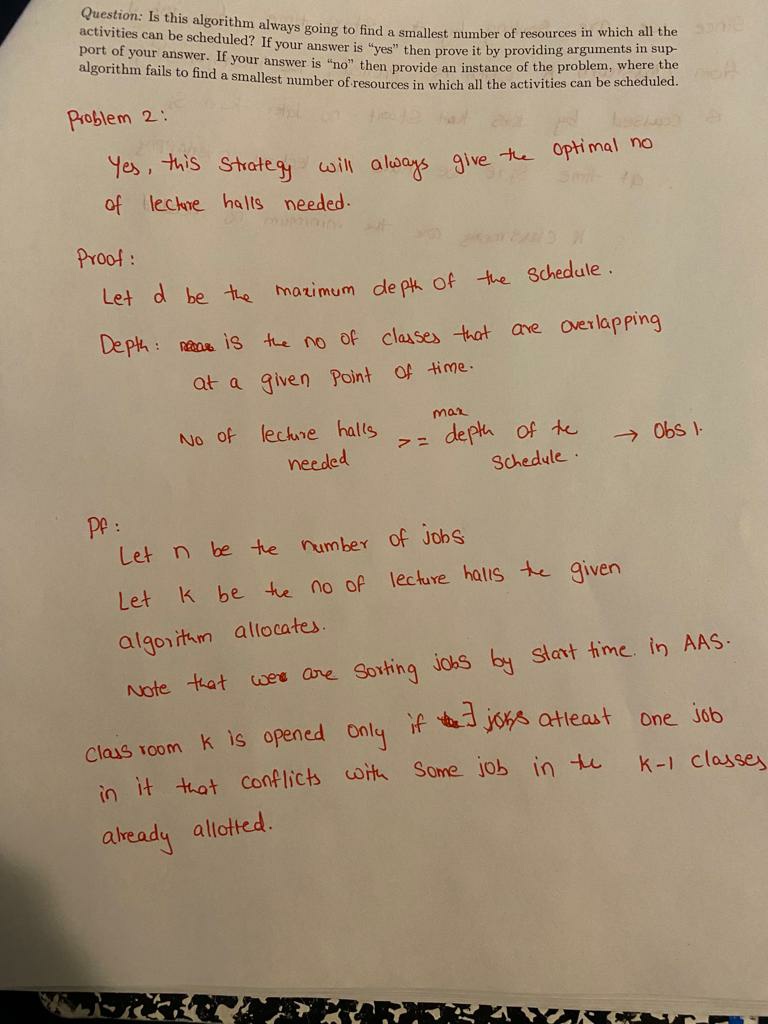 Question: Is this algorithm always going to find a smallest number of resources in which all the
activities can be scheduled? If your answer is "yes" then prove it by providing arguments in sup-
port of your answer. If your answer is "no" then provide an instance of the problem, where the
algorithm fails to find a smallest number of resources in which all the activities can be scheduled.
Problem 2:
Yes, this strategy will always give the optimal no
of lecture halls needed.
Proof:
Let d be the maximum depth of the schedule.
Depth: is the no of classes that are overlapping
at a given point of time.
max
No of lecture halls >= depth of the → Obs 1.
needed schedule.
Pf:
Let n be the number of jobs
Let k be the no of lecture halls the given
algorithm allocates.
Note that we are sorting jobs by start time. in AAS.
Class room k is opened only if ∃ jobs atleast one job
in it that conflicts with some job in the k-1 classes
already allotted.